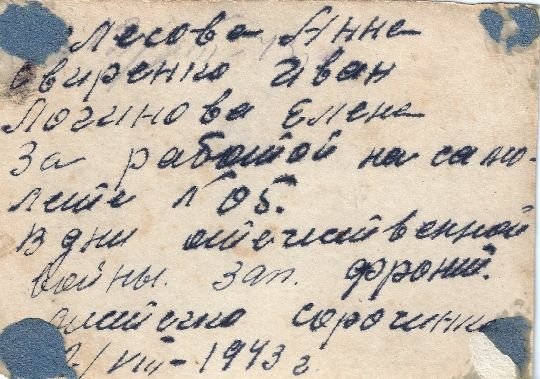 лесова Анна
Свиренко Иван
Логинова Елена
За работой на само-
лете № 05.
В дни отечественной
войны. Зап. фронт.
местечко сорочинка
/VIII-1943 г.